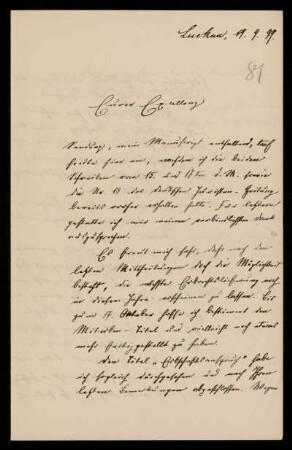 Luckau, 19. 9. 99.
81
Eurer Excellenz
Sendung, mein Manuscript enthaltend, traf
heute hier ein, nachdem ich die beiden
Schreiben vom 15. und 17ten d. M. sowie
die Nr. 18 der Deutschen Juristen-Zeitung
bereits vorher erhalten hatte. Für letztere
gestatte ich mir meinen verbindlichsten Dank
auszusprechen.
Es freut mich sehr, daß nach den
letzten Mittheilungen doch die Möglichkeit
besteht, die erste Erbrechtslieferung noch
in diesem Jahre erscheinen zu lassen. Bis
zum 17. Oktober hoffe ich bestimmt den
Miterben-Titel und vielleicht noch etwas
mehr fertiggestellt zu haben.
Den Titel „Erbschaftsanspruch" habe
ich sogleich durchgesehen und nach Ihren
letzten Bemerkungen abgeschlossen. Wegen